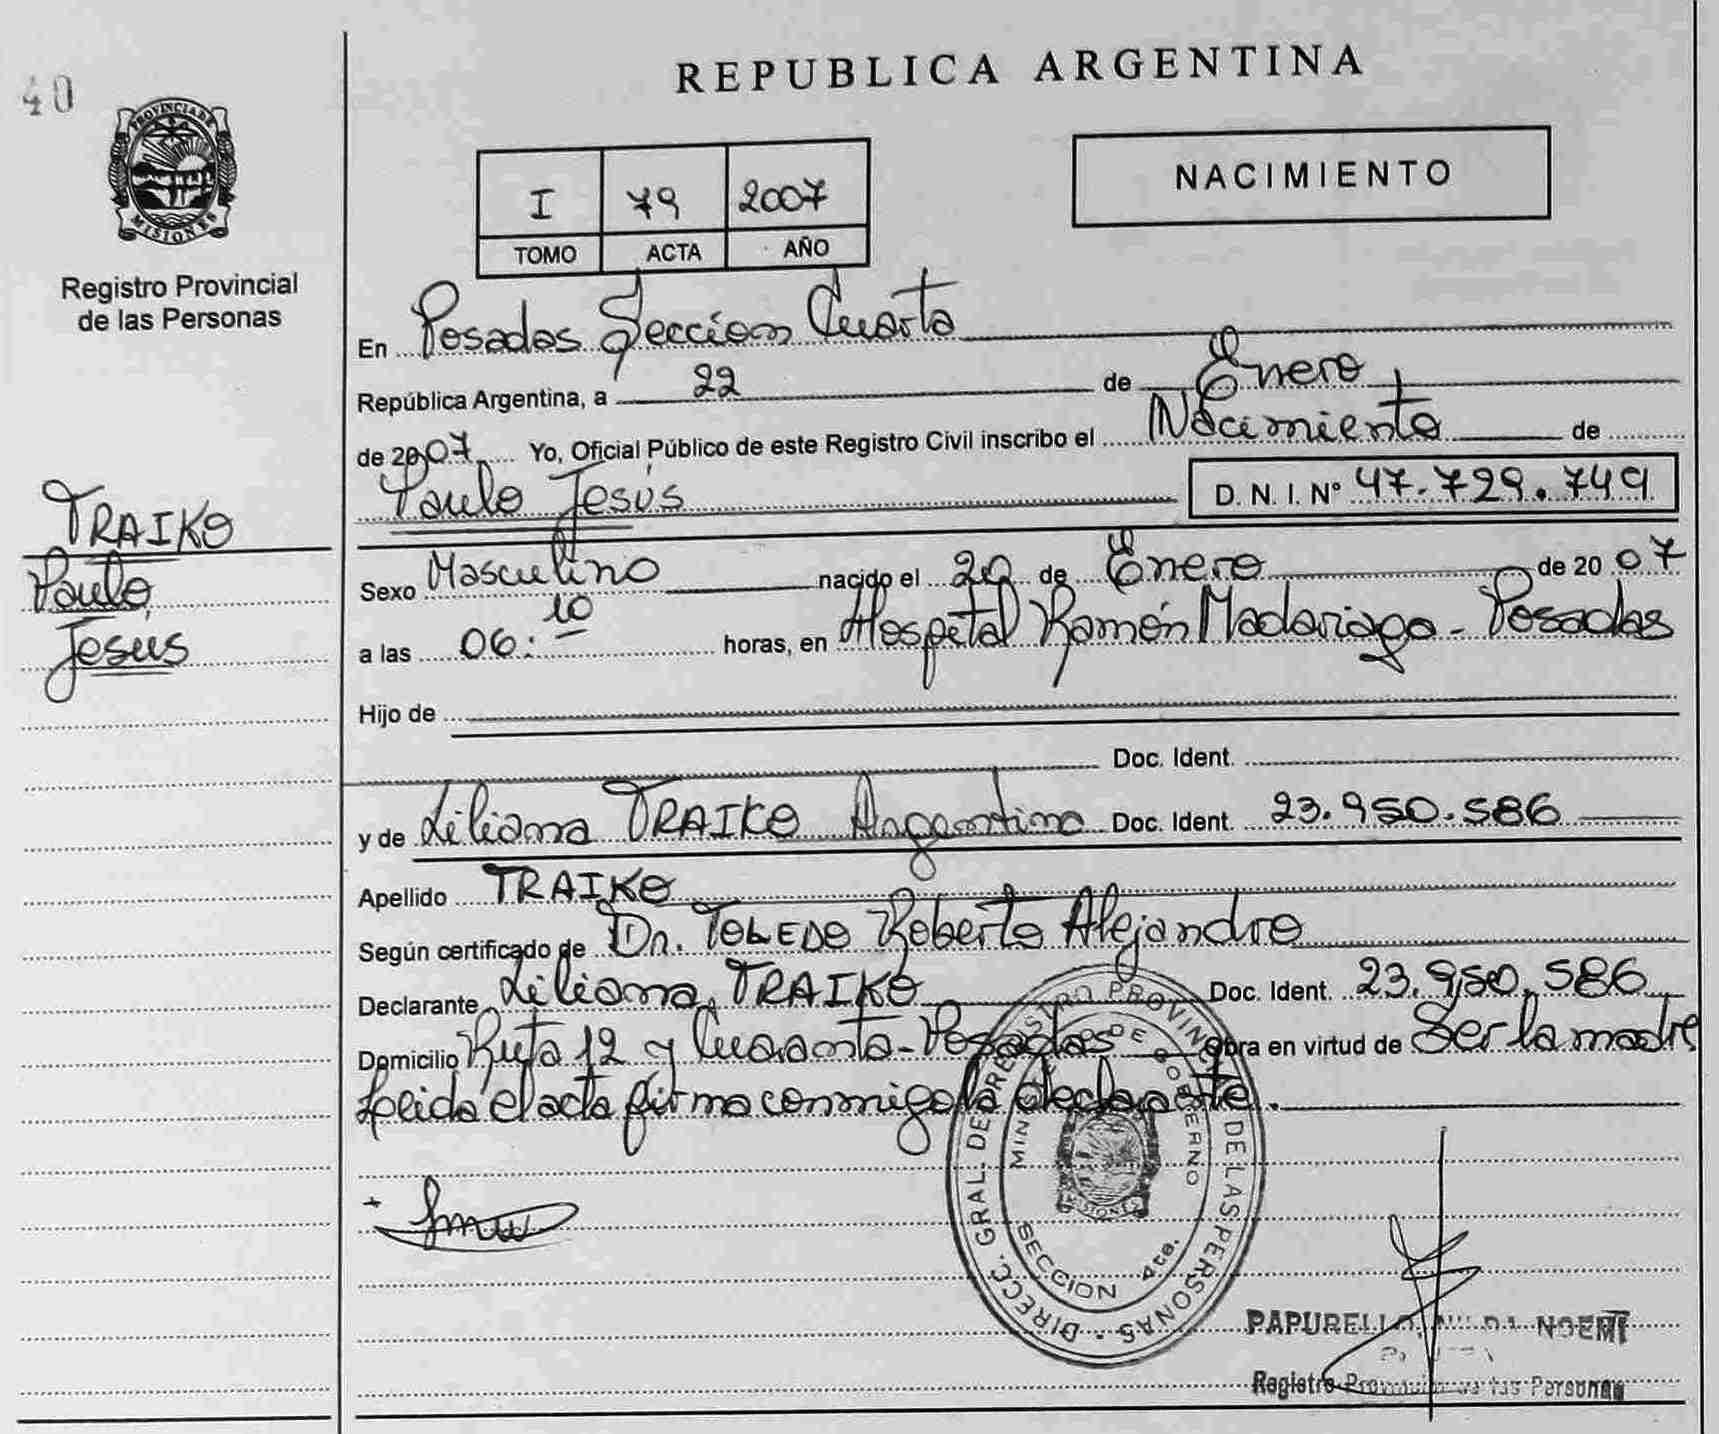 REPUBLICA ARGENTINA
40
PROVINCIA DE
MISIONES
Registro Provincial
de las Personas
I 79 2007
TOMO ACTA AÑO
NACIMIENTO
En Posadas Sección Cuarta
República Argentina, a 22 de Enero
de 2007 Yo, Oficial Público de este Registro Civil inscribo el Nacimiento de
Paulo Jesús D. N. I. Nº 47.729.749
TRAIKO
Paulo
Jesús
Sexo Masculino nacido el 20 de Enero de 2007
a las 06:10 horas, en Hospital Ramón Madariaga - Posadas
Hijo de
Doc. Ident.
y de Liliana TRAIKO Argentina Doc. Ident. 23.950.586
Apellido TRAIKO
Según certificado de Dr. TOLEDO Roberto Alejandro
Declarante Liliana TRAIKO Doc. Ident. 23.950.586
Domicilio Ruta 12 y Cuarenta - Posadas obra en virtud de Ser la madre
Leída el acta firma conmigo la declarante.
DIRECC. GRAL. DE REGISTRO PROVINC. DE LAS PERSONAS
MINISTERIO DE GOBIERNO
MISIONES
SECCION 4ta.
PAPURELLO NOEMI
Registro Provincial de las Personas